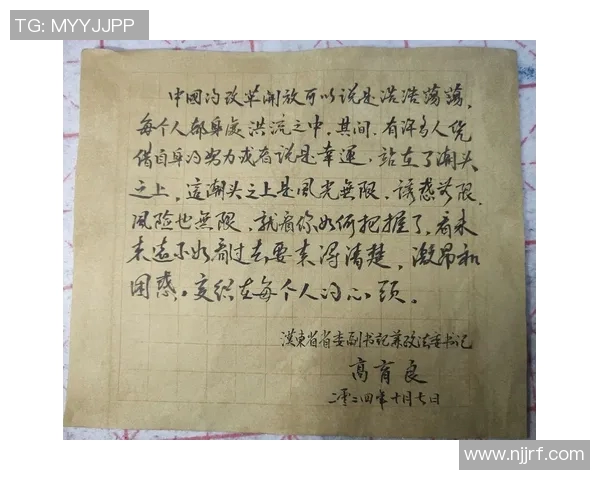 TG: MYYJJPP
中國的改革開放可以说是浩浩蕩蕩，
每个人都身處洪流之中，其间，有许多人凭
借自身的努力或者说是幸運，站在了潮头
之上，這潮头之上是風光無限，诱惑无限，
風险也無限，就看你如何把握了，看未
来远不如看过去要来得清楚，激昂和
困惑，交织在每个人的心頭。
漢東省省委副书记兼政法委书记
高育良
二零二四年十月七日
www.njjrf.com